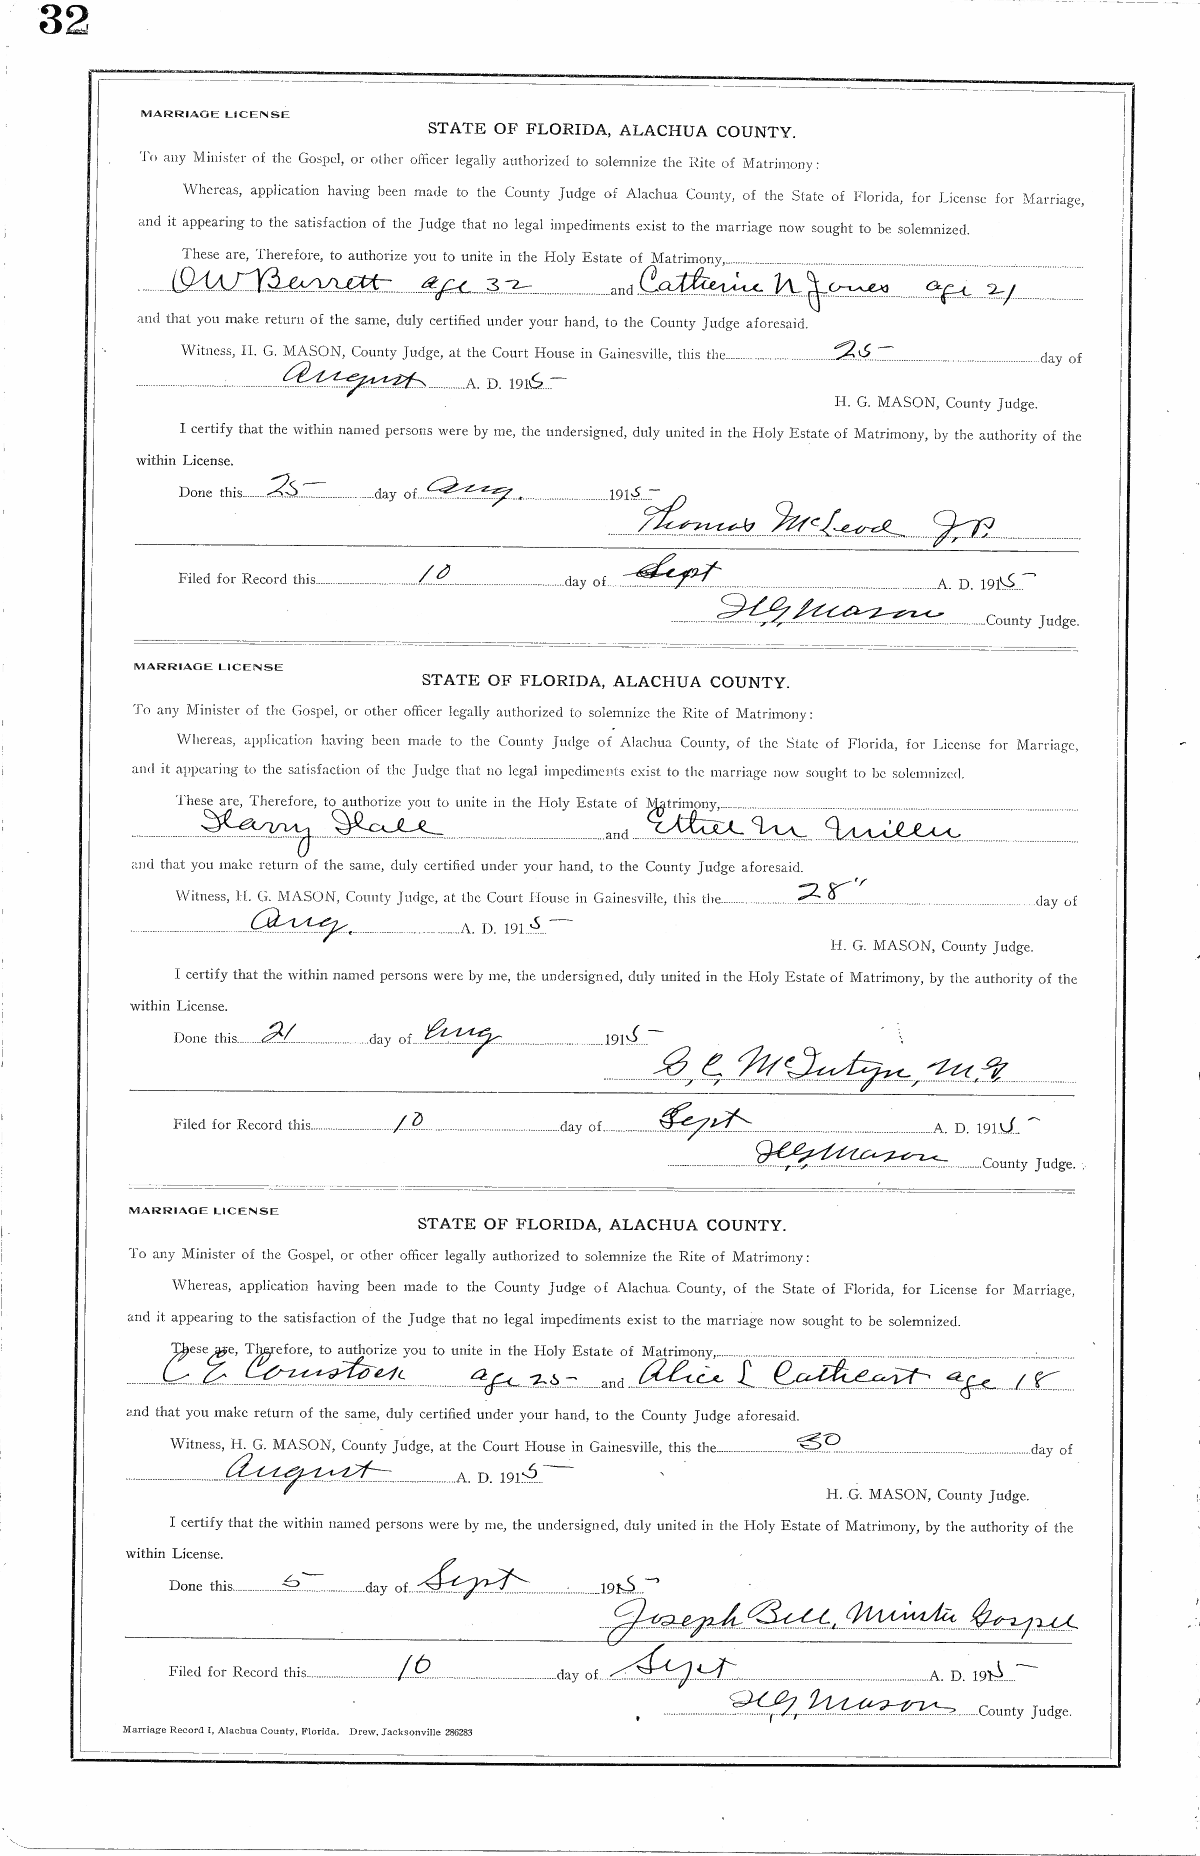 32
MARRIAGE LICENSE
STATE OF FLORIDA, ALACHUA COUNTY.
To any Minister of the Gospel, or other officer legally authorized to solemnize the Rite of Matrimony:
Whereas, application having been made to the County Judge of Alachua County, of the State of Florida, for License for Marriage,
and it appearing to the satisfaction of the Judge that no legal impediments exist to the marriage now sought to be solemnized.
These are, Therefore, to authorize you to unite in the Holy Estate of Matrimony,
O W Barrett age 32 and Catherine N Jones age 21
and that you make return of the same, duly certified under your hand, to the County Judge aforesaid.
Witness, H. G. MASON, County Judge, at the Court House in Gainesville, this the 25 day of
August A. D. 1915
H. G. MASON, County Judge.
I certify that the within named persons were by me, the undersigned, duly united in the Holy Estate of Matrimony, by the authority of the
within License.
Done this 25 day of Aug. 1915
Thomas McLeod J.P.
Filed for Record this 10 day of Sept A. D. 1915
H G Mason County Judge.
MARRIAGE LICENSE
STATE OF FLORIDA, ALACHUA COUNTY.
To any Minister of the Gospel, or other officer legally authorized to solemnize the Rite of Matrimony:
Whereas, application having been made to the County Judge of Alachua County, of the State of Florida, for License for Marriage,
and it appearing to the satisfaction of the Judge that no legal impediments exist to the marriage now sought to be solemnized.
These are, Therefore, to authorize you to unite in the Holy Estate of Matrimony,
Harry Hall and Ethel M Miller
and that you make return of the same, duly certified under your hand, to the County Judge aforesaid.
Witness, H. G. MASON, County Judge, at the Court House in Gainesville, this the 28" day of
Aug. A. D. 1915
H. G. MASON, County Judge.
I certify that the within named persons were by me, the undersigned, duly united in the Holy Estate of Matrimony, by the authority of the
within License.
Done this 21 day of Aug 1915
McIntyre, M.G.
Filed for Record this 10 day of Sept A. D. 1915
H G Mason County Judge.
MARRIAGE LICENSE
STATE OF FLORIDA, ALACHUA COUNTY.
To any Minister of the Gospel, or other officer legally authorized to solemnize the Rite of Matrimony:
Whereas, application having been made to the County Judge of Alachua County, of the State of Florida, for License for Marriage,
and it appearing to the satisfaction of the Judge that no legal impediments exist to the marriage now sought to be solemnized.
These are, Therefore, to authorize you to unite in the Holy Estate of Matrimony,
C E Comstock age 25 and Alice L Cathcart age 18
and that you make return of the same, duly certified under your hand, to the County Judge aforesaid.
Witness, H. G. MASON, County Judge, at the Court House in Gainesville, this the 30 day of
August A. D. 1915
H. G. MASON, County Judge.
I certify that the within named persons were by me, the undersigned, duly united in the Holy Estate of Matrimony, by the authority of the
within License.
Done this 5 day of Sept 1915
Joseph Bell, Minister Gospel
Filed for Record this 10 day of Sept A. D. 1915
H G, Mason County Judge.
Marriage Record I, Alachua County, Florida. Drew, Jacksonville 286283